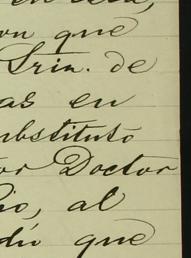 en esta,
on que
Sria. de
as en
ubstituto
or Doctor
io, al
dio que